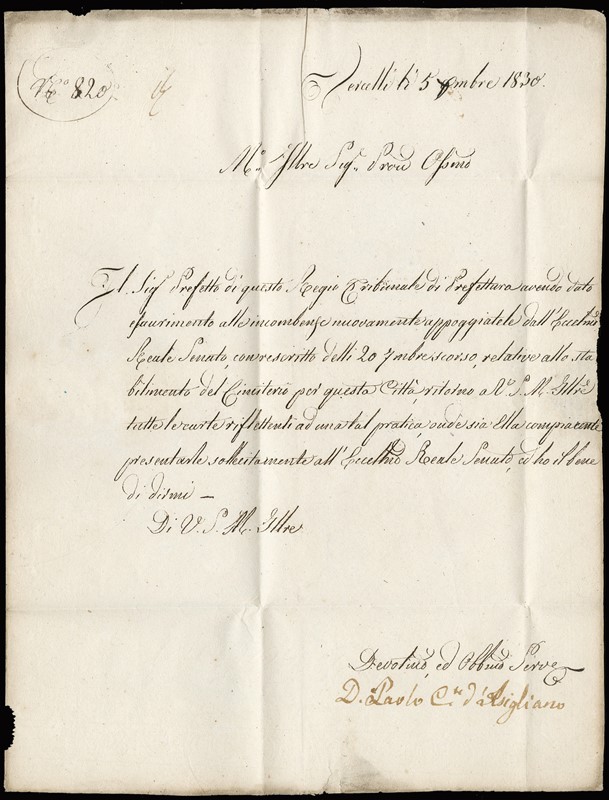 N.° 820
Vercelli li 5 9mbre 1830.
M.° Illre Sig.r Pron Ossmo
Il Sig.r Prefetto di questo Regio Tribunale di Prefettura avendo dato
esaurimento alle incombenze nuovamente appoggiatele dall'Eccellmo
Reale Senato, con rescritto delli 20 7mbre scorso, relative allo sta
bilimento del Cimiterio per questa Città ritorno a V.S. M. Illre
tutte le carte riflettenti ad una tal pratica, onde sia Ella compiacente
presentarle sollecitamente all'Eccellmo Reale Senato, ed ho il bene
di dirmi —
Di V. S. M. Illre
Devotmo, ed Obbmo Serve
D. Paolo C. d'Asigliano